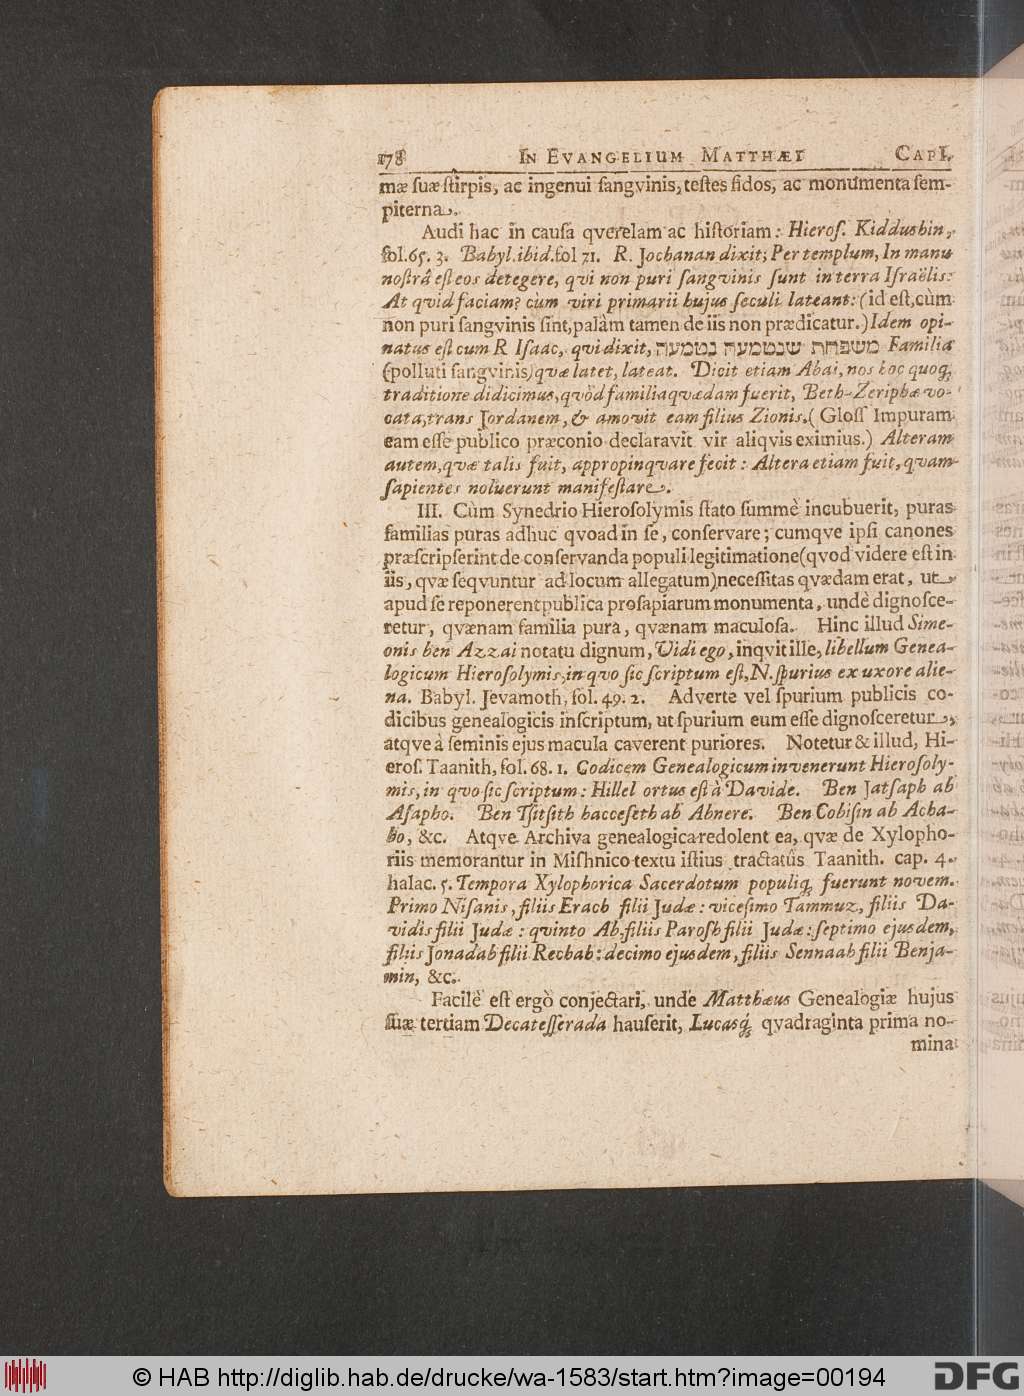 178 IN EVANGELIUM MATTHÆI CAP I.
mæ suæ stirpis, ac ingenui sangvinis, testes fidos, ac monumenta sem-
piterna.
Audi hac in causâ qverelam ac historiam: Hieros. Kiddushin,
fol. 65. 3. Babyl. ibid. fol 71. R. Jochanan dixit; Per templum, In manu
nostrâ est eos detegere, qvi non puri sangvinis sunt in terra Israëlis:
At qvid faciam? cùm viri primarii hujus seculi lateant: (id est, cùm
non puri sangvinis sint, palàm tamen de iis non prædicatur.) Idem opi-
natus est cum R Isaac, qvi dixit, משפחת שנטמעה נטמעה Familia
(polluti sangvinis) qvæ latet, lateat. Dicit etiam Abai, nos hoc quoq;
traditione didicimus, qvòd familia qvædam fuerit, Beth-Zeriphæ vo-
cata, trans Jordanem, & amovit eam filius Zionis. (Gloss Impuram
eam esse publico præconio declaravit vir aliqvis eximius.) Alteram
autem, qvæ talis fuit, appropinqvare fecit: Altera etiam fuit, qvam
sapientes noluerunt manifestare.
III. Cùm Synedrio Hierosolymis stato summè incubuerit, puras
familias puras adhuc qvoad in se, conservare; cumqve ipsi canones
præscripserint de conservanda populi legitimatione (qvod videre est in
iis, qvæ seqvuntur ad locum allegatum) necessitas qvædam erat, ut
apud se reponerent publica prosapiarum monumenta, undè dignosce-
retur, qvænam familia pura, qvænam maculosa. Hinc illud Sime-
onis ben Azzai notatu dignum, Vidi ego, inqvit ille, libellum Genea-
logicum Hierosolymis, in qvo sic scriptum est, N. spurius ex uxore alie-
na. Babyl. Jevamoth, fol. 49. 2. Adverte vel spurium publicis co-
dicibus genealogicis inscriptum, ut spurium eum esse dignosceretur,
atqve à seminis ejus macula caverent puriores. Notetur & illud, Hi-
eros. Taanith, fol. 68. 1. Codicem Genealogicum invenerunt Hierosoly-
mis, in qvo sic scriptum: Hillel ortus est à Davide. Ben Jatsaph ab
Asapho. Ben Tsitsith hacceseth ab Abnere. Ben Cobisin ab Acha-
bo, &c. Atqve Archiva genealogica redolent ea, qvæ de Xylopho-
riis memorantur in Mishnico textu istius tractatûs Taanith. cap. 4.
halac. 5. Tempora Xylophorica Sacerdotum populiq; fuerunt novem.
Primo Nisanis, filiis Erach filii Judæ: vicesimo Tammuz, filiis Da-
vidis filii Judæ: qvinto Ab, filiis Parosh filii Judæ: septimo ejusdem,
filiis Jonadab filii Rechab: decimo ejusdem, filiis Sennaab filii Benja-
min, &c.
Facilè est ergò conjectari, unde Matthæus Genealogiæ hujus
suæ tertiam Decatesserada hauserit, Lucasq; qvadraginta prima no-
mina
© HAB http://diglib.hab.de/drucke/wa-1583/start.htm?image=00194
DFG